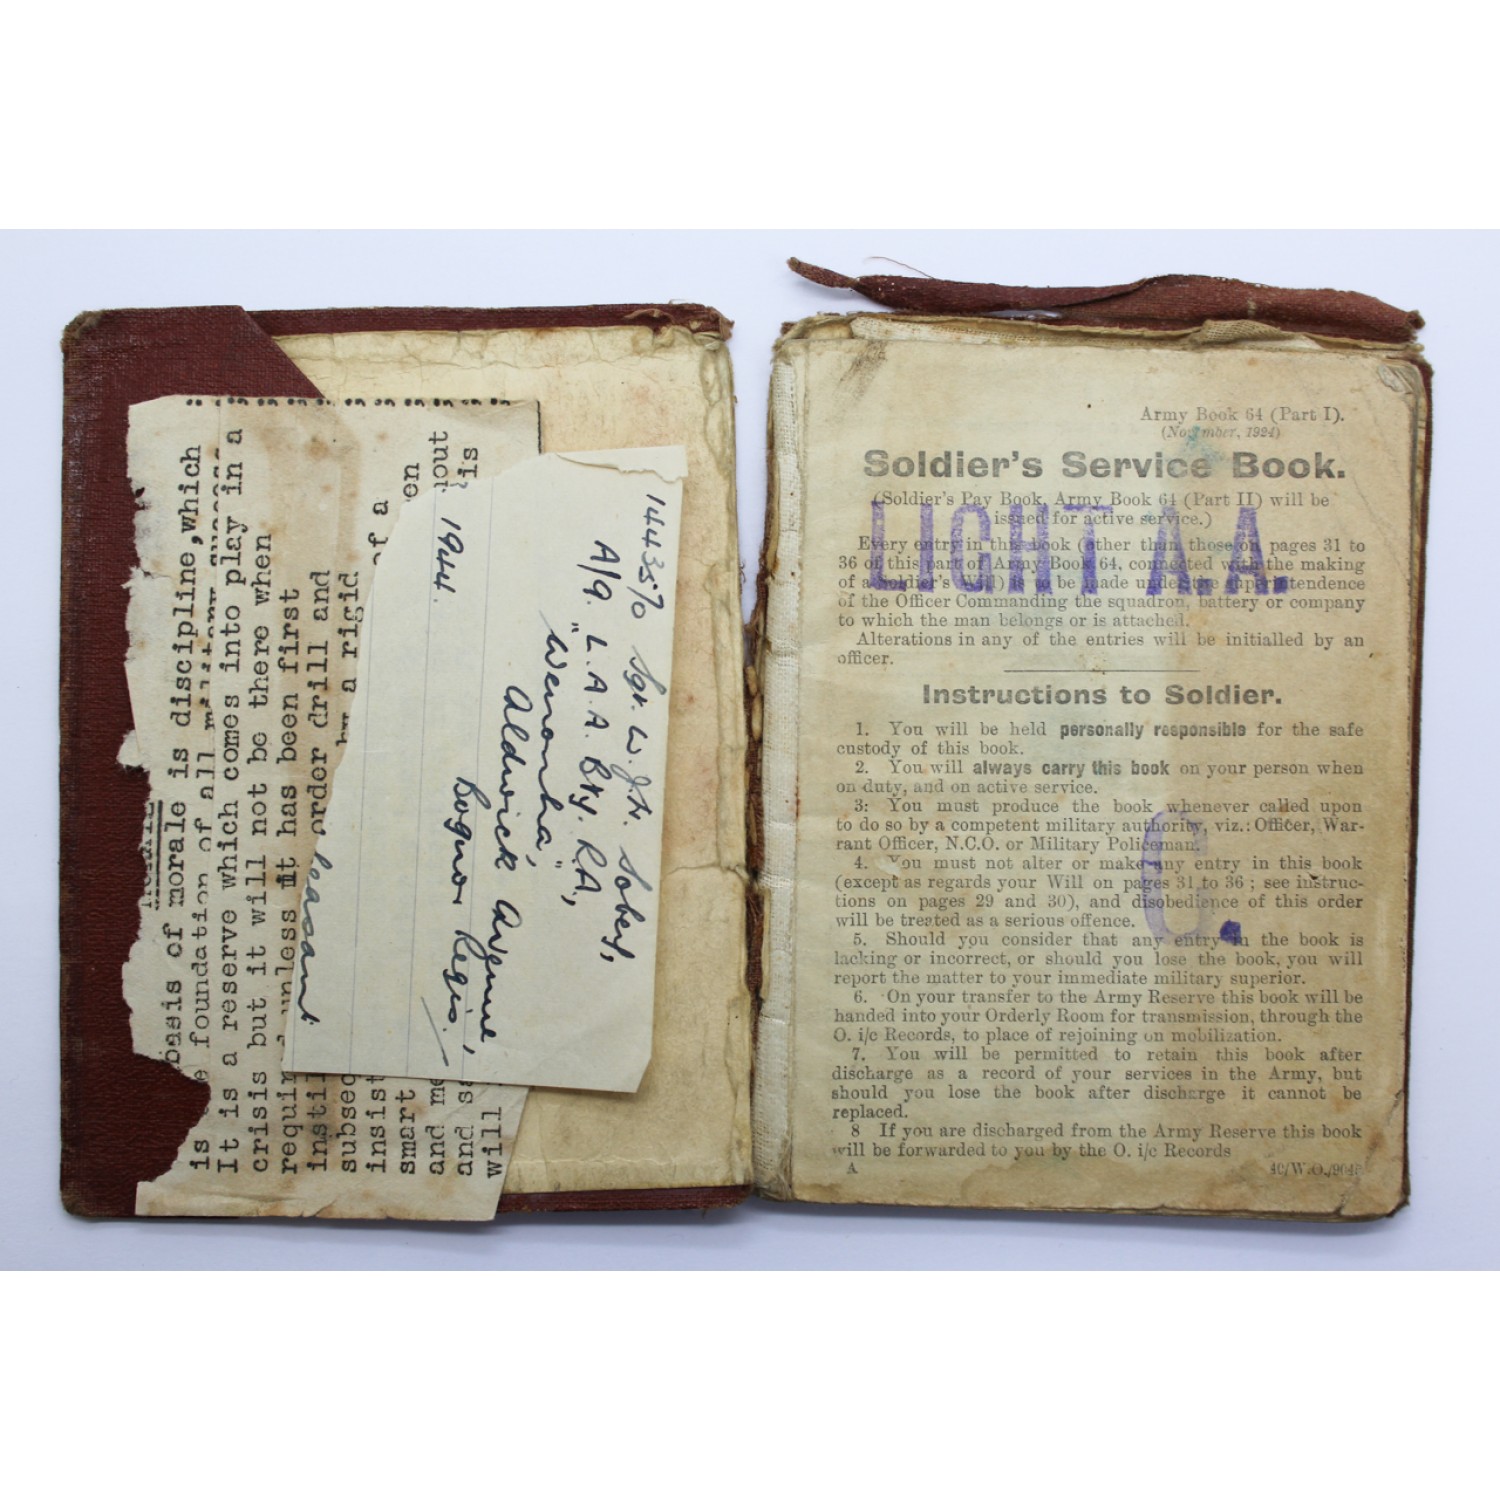 basis of morale is discipline,which
is the foundation of all military success
It is a reserve which comes into play in a
crisis but it will not be there when
unless it has been first
order drill and
by a rigid
of a
smart
and
and
will
pleasant
1944.
1443570 Sgt. W. J. H. Sobey,
A/9. L. A. A. Bty. R.A.,
"Wenonha,"
Aldwick Avenue,
Bognor Regis.
Army Book 64 (Part I).
(November, 1924)
Soldier's Service Book.
(Soldier's Pay Book, Army Book 64 (Part II) will be
issued for active service.)
LIGHT A.A.
Every entry in this book (other than those on pages 31 to
36 of this part of Army Book 64, connected with the making
of a Soldier's Will) is to be made under the superintendence
of the Officer Commanding the squadron, battery or company
to which the man belongs or is attached.
Alterations in any of the entries will be initialled by an
officer.
Instructions to Soldier.
1. You will be held personally responsible for the safe
custody of this book.
2. You will always carry this book on your person when
on duty, and on active service.
3: You must produce the book whenever called upon
to do so by a competent military authority, viz.: Officer, War-
rant Officer, N.C.O. or Military Policeman.
4. You must not alter or make any entry in this book
(except as regards your Will on pages 31 to 36 ; see instruc-
tions on pages 29 and 30), and disobedience of this order
will be treated as a serious offence.
C.
5. Should you consider that any entry in the book is
lacking or incorrect, or should you lose the book, you will
report the matter to your immediate military superior.
6. On your transfer to the Army Reserve this book will be
handed into your Orderly Room for transmission, through the
O. i/c Records, to place of rejoining on mobilization.
7. You will be permitted to retain this book after
discharge as a record of your services in the Army, but
should you lose the book after discharge it cannot be
replaced.
8 If you are discharged from the Army Reserve this book
will be forwarded to you by the O. i/c Records
A